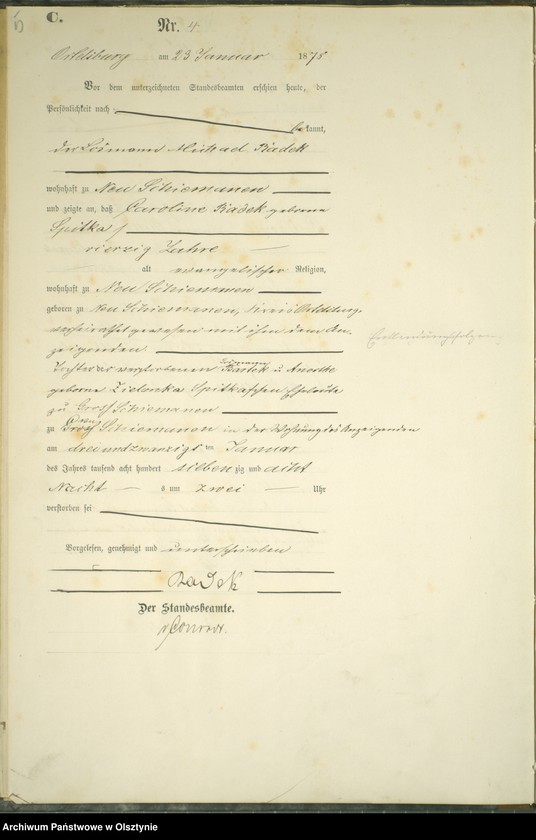 C.
Nr. 4
Ortelsburg am 23 Januar 1878
Vor dem unterzeichneten Standesbeamten erschien heute, der
Persönlichkeit nach
bekannt,
der Losmann Michael Radek
wohnhaft zu Neu Schiemanen
und zeigte an, daß Caroline Radek geborene
Spitka
vierzig Jahre
alt evangelischer Religion,
wohnhaft zu Neu Schiemanen
geboren zu Neu Schiemanen, Kreis Ortelsburg,
verheirathet gewesen mit ihm dem An-
zeigenden.
Tochter der verstorbenen Losmann u.
geborene Zielonka Spitkaschen Eheleute
zu Gross Schiemanen
zu Neu Schiemanen in der Wohnung des Anzeigenden
am drei und zwanzigsten Januar
des Jahres tausend acht hundert siebenzig und acht
Nachts um zwei Uhr
verstorben sei
Vorgelesen, genehmigt und unterschrieben
Radek
Der Standesbeamte.
v Conradt.
Archiwum Państwowe w Olsztynie